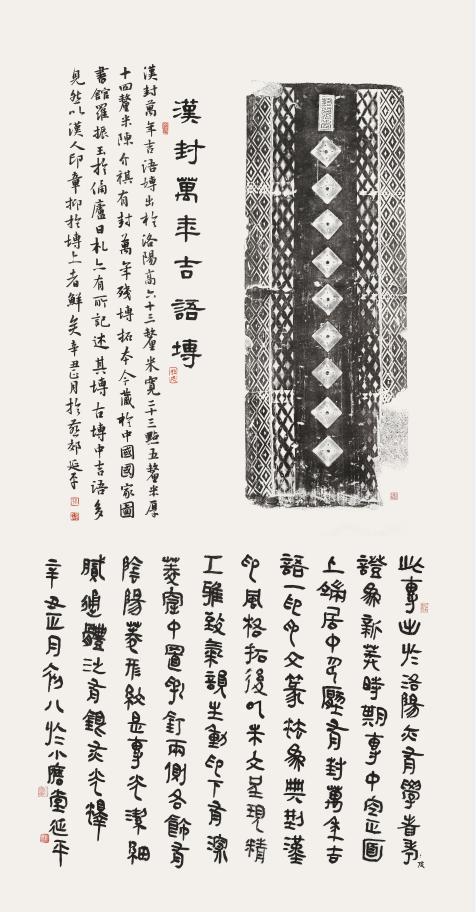 漢封萬年吉語塼
漢封萬年吉語塼出於洛陽高六十三釐米寬二十三點五釐米厚
十四釐米陳介祺有封萬年殘塼拓本今藏於中國國家圖
書館羅振玉於俑廬日札亦有所記述其塼古塼中吉語多
見然以漢人印章抑於塼上者鮮矣辛丑正月於燕郊延平
此專出於洛陽亦有學者考
證爲新莽時期專中空正面
上端居中壓有封萬年吉
語一印印文篆爲典型漢
印風格拓後以朱文呈現精
工雅致氣韻生動印下有深
菱中置乳釘兩側各飾有
陰陽菱形紋是專光潔細
膩通體泛有銀灰光澤
辛丑正月初八於小堂延平